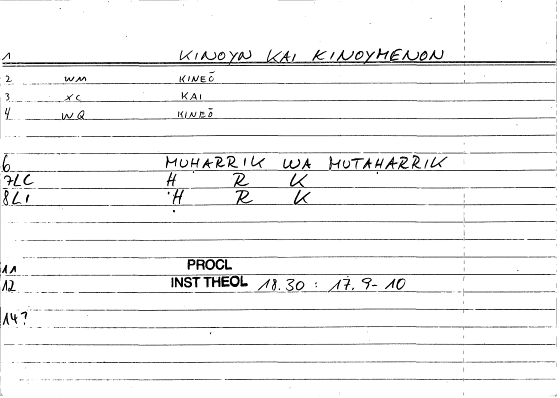 1 KINOYN KAI KINOYMENON
2 WM KINEŌ
3 XC KAI
4 WQ KINEŌ
6 MUHARRIK WA MUTAHARRIK
7LC Ḥ R K
8L1 Ḥ R K
11 PROCL
12 INST THEOL 18.30 : 17.9-10
14?